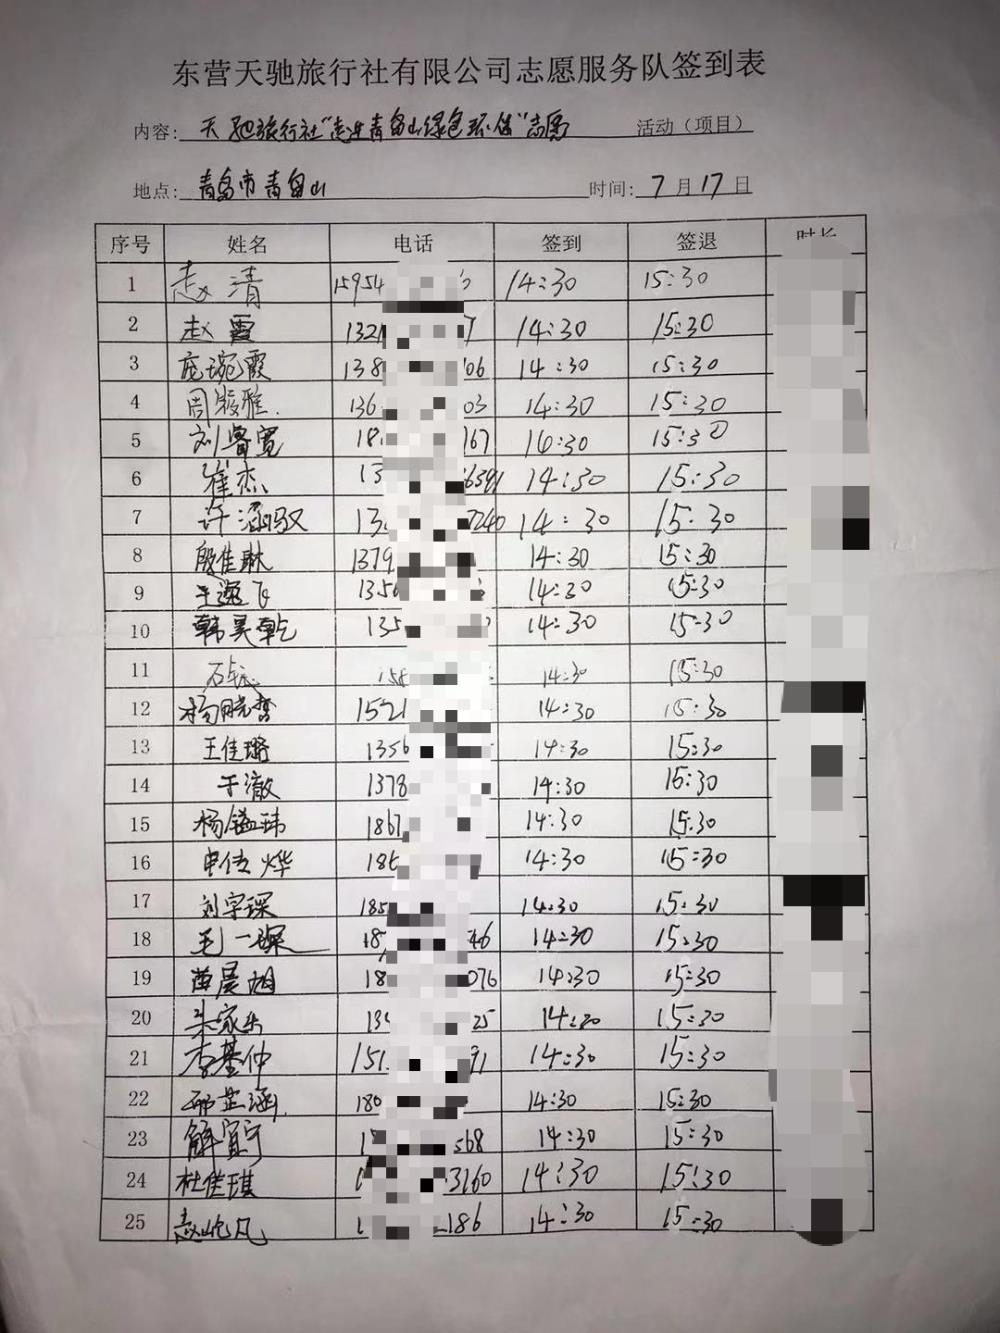 东营天驰旅行社有限公司志愿服务队签到表
内容: 天驰旅行社"走进青岛山绿色环保"志愿 活动（项目）
地点: 青岛市青岛山 时间: 7月17日
序号 姓名 电话 签到 签退 时长
1 赵清 15954 14:30 15:30
2 赵霞 1321 14:30 15:30
3 庞琬霞 138 06 14:30 15:30
4 周 雅 136 03 14:30 15:30
5 刘睿宽 18 167 14:30 15:30
6 崔杰 13 6391 14:30 15:30
7 许涵驭 13 7240 14:30 15:30
8 殷佳琳 1379 14:30 15:30
9 王逸飞 1356 14:30 15:30
10 韩昊乾 135 14:30 15:30
11 石 158 14:30 15:30
12 杨晓哲 1521 14:30 15:30
13 王佳璐 1356 14:30 15:30
14 于澈 1378 14:30 15:30
15 杨镒玮 1867 14:30 15:30
16 申传烨 186 14:30 15:30
17 刘宇琛 185 14:30 15:30
18 毛一琛 18 46 14:30 15:30
19 苗晨旭 18 076 14:30 15:30
20 朱家乐 13 25 14:30 15:30
21 李基仲 151 91 14:30 15:30
22 邵芷涵 180 14:30 15:30
23 解宜宁 1 568 14:30 15:30
24 杜佳琪 1 3160 14:30 15:30
25 赵屹凡 1 186 14:30 15:30